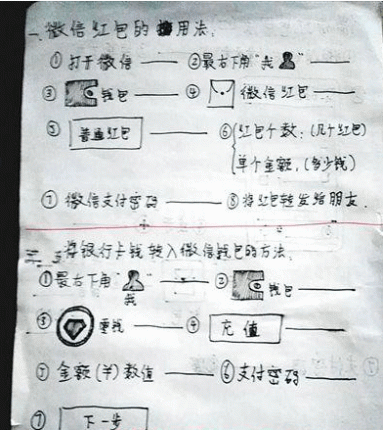 一、微信红包的用法:
①打开微信 —— ②最右下角"我" ——
③ 钱包 —— ④ 微信红包 ——
⑤ 普通红包 —— ⑥ 红包个数:(几个红包)
单个金额:(多少钱)
⑦ 微信支付密码 —— ⑧ 将红包转发给朋友.
二、将银行卡钱转入微信钱包的方法.
①最右下角"我" —— ② 钱包 ——
③ 零钱 —— ④ 充值 ——
⑤ 金额(羊)数值 —— ⑥支付密码 ——
⑦ 下一步